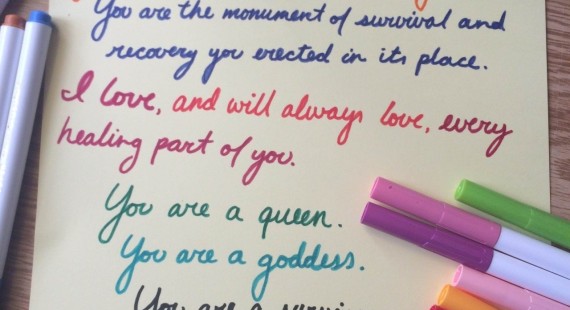 You are the monument of survival and
recovery you erected in its place.
I love, and will always love, every
healing part of you.
You are a queen.
You are a goddess.
You are a